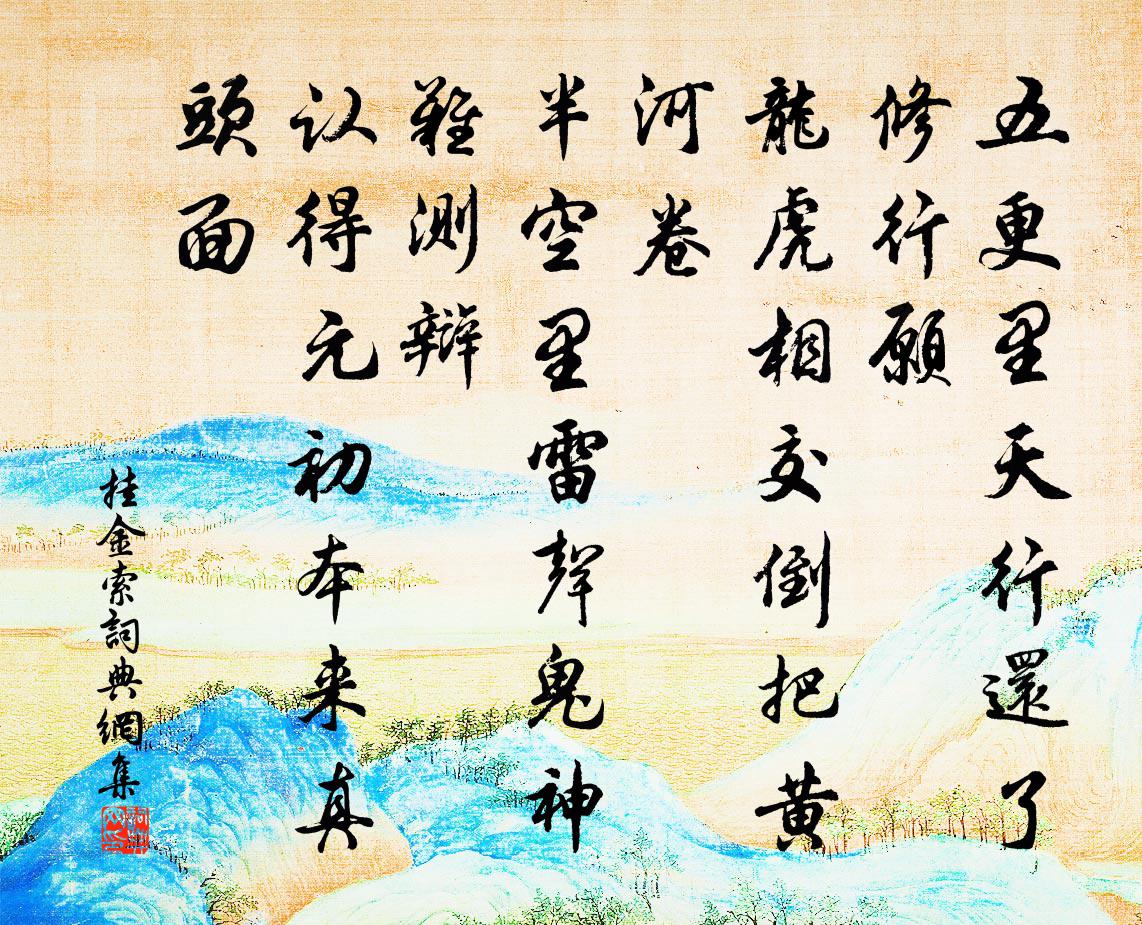 五更里天行還了
修行願
龍虎相交倒把黄
河卷
半空里雷聲鬼神
難測辯
认得元初本来真
頭面
挂金索詞典網集